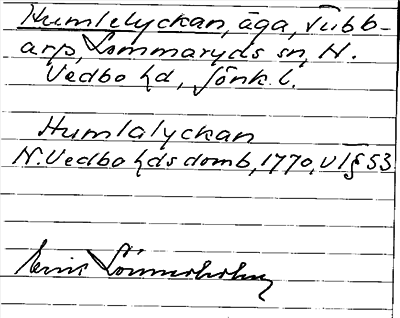 Humlelyckan, äga, Vibb-
arp, Lommaryds sn, N.
Vedbo hd, Jönk. l.
Humlalyckan
N. Vedbo hds domb, 1770, v 1 § 53
Erik